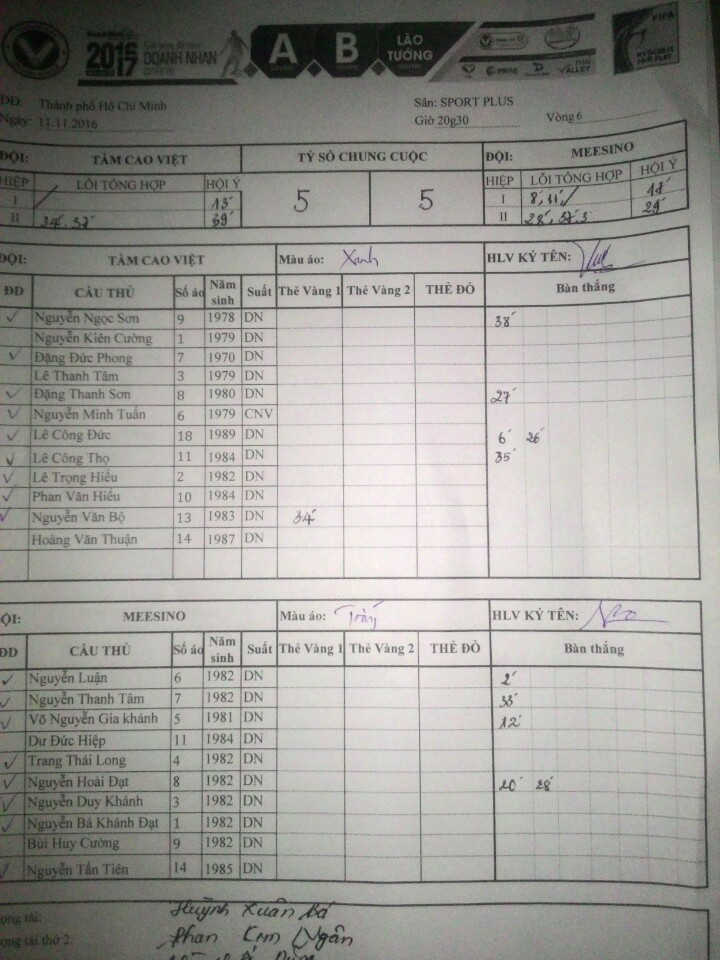 2016
2017
DOANH NHÂN
A
B
LÃO TƯỚNG
FIFA
ĐĐ: Thành phố Hồ Chí Minh
Sân: SPORT PLUS
Ngày: 11.11.2016
Giờ 20g30
Vòng 6
ĐỘI: TÂM CAO VIỆT TỶ SỐ CHUNG CUỘC ĐỘI: MEESINO
HIỆP LỖI TỔNG HỢP HỘI Ý 5 5 HIỆP LỖI TỔNG HỢP HỘI Ý
I 13' I 8', 11' 17'
II 34', 37' 39' II 28', 37' 29'
ĐỘI: TÂM CAO VIỆT Màu áo: Xanh HLV KÝ TÊN:
ĐD CẦU THỦ Số áo Năm sinh Suất Thẻ Vàng 1 Thẻ Vàng 2 THẺ ĐỎ Bàn thắng
✓ Nguyễn Ngọc Sơn 9 1978 DN 38'
Nguyễn Kiên Cường 1 1979 DN
✓ Đặng Đức Phong 7 1970 DN
Lê Thanh Tâm 3 1979 DN
✓ Đặng Thanh Sơn 8 1980 DN 27'
✓ Nguyễn Minh Tuấn 6 1979 CNV
✓ Lê Công Đức 18 1989 DN 6' 26'
✓ Lê Công Thọ 11 1984 DN 35'
✓ Lê Trọng Hiếu 2 1982 DN
✓ Phan Văn Hiếu 10 1984 DN
✓ Nguyễn Văn Bộ 13 1983 DN 34'
Hoàng Văn Thuận 14 1987 DN
ĐỘI: MEESINO Màu áo: Trắng HLV KÝ TÊN:
ĐD CẦU THỦ Số áo Năm sinh Suất Thẻ Vàng 1 Thẻ Vàng 2 THẺ ĐỎ Bàn thắng
✓ Nguyễn Luận 6 1982 DN 2'
✓ Nguyễn Thanh Tâm 7 1982 DN 33'
✓ Võ Nguyễn Gia khánh 5 1981 DN 12'
Dư Đức Hiệp 11 1984 DN
✓ Trang Thái Long 4 1982 DN
✓ Nguyễn Hoài Đạt 8 1982 DN 20' 28'
✓ Nguyễn Duy Khánh 3 1982 DN
✓ Nguyễn Bá Khánh Đạt 1 1982 DN
Bùi Huy Cường 9 1982 DN
✓ Nguyễn Tấn Tiên 14 1985 DN
ọng tài: Huỳnh Xuân Bá
ọng tài thứ 2: Phan Kim Ngân